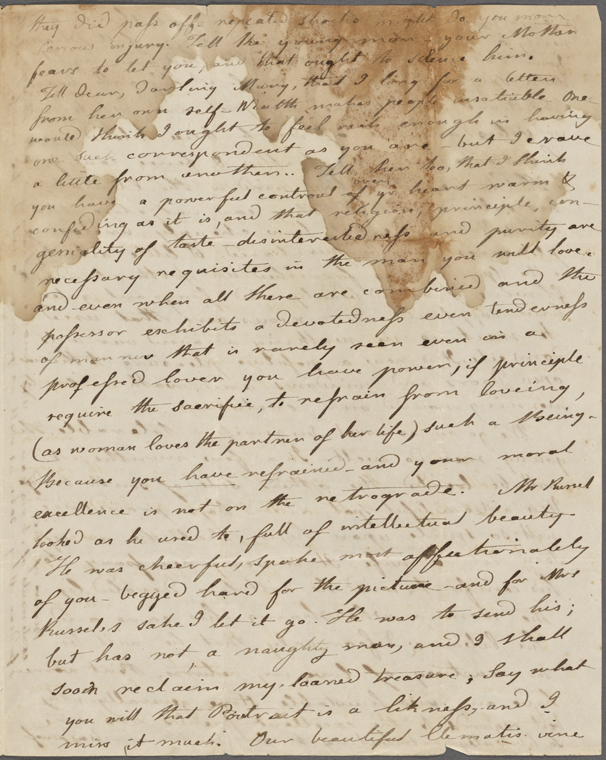 they did pass off repeated shocks might do you more
serious injury. Tell the young man your Mother
fears to let you, and that ought to silence him.
Tell dear, darling Mary, that I long for a letter
from her own self- Wealth makes people insatiable. One
would think I ought to feel rich enough in having
one such correspondent as you are but I crave
a little from another.. Tell her too, that I think
you have a powerful control over yr heart warm &
confiding as it is, and that religion, principle, con-
geniality of taste- disinterestedness and purity are
necessary requisites in the man you will love.
and even when all these are combined and the
possessor exhibits a devotedness even tenderness
of manner that is rarely seen even in a
professed lover you have power, if principle
require the sacrifice, to refrain from loveing,
(as woman loves the partner of her life) such a Being-
Because you have refrained- and your moral
excellence is not on the retrograde. Mr Russel
looked as he used to, full of intellectual beauty
He was cheerful, spoke most affectionately
of you- begged hard for the picture- and for Mrs
Russel,s sake I let it go. He was to send his;
but has not, a naughty man, and I shall
soon reclaim my loaned treasure; Say what
you will that Portrait is a likness, and I
miss it much. Our beautiful Clematis vine